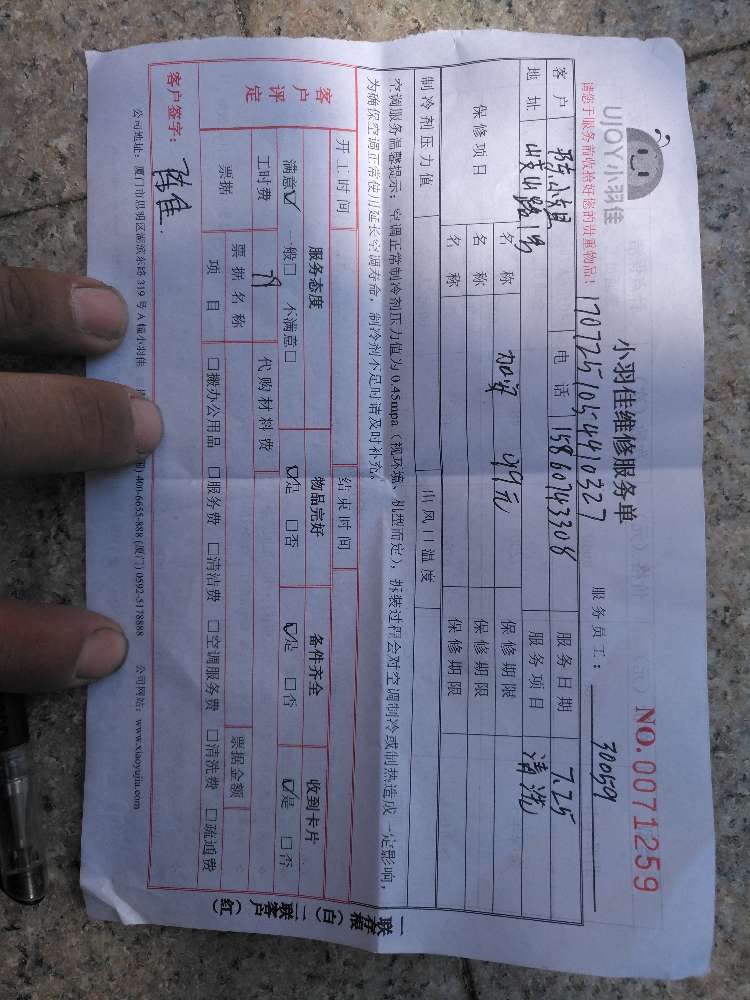 UIOY小羽佳
小羽佳维修服务单
服务员工： 300509
NO.0071259
请您于服务前收捡好您的贵重物品！ 170725105440327
客户 电话 15860143308 服务日期 7.25
地址 服务项目 清洗
保修项目 名称 加氟 99元 保修期限
名称 保修期限
名称 保修期限
制冷剂压力值 出风口温度
空调服务温馨提示：空调正常制冷剂压力值为0.45mpa（视环境、机型而定），拆装过程会对空调制冷或制热造成一定影响，
为确保空调正常使用延长空调寿命，制冷剂不足时请及时补充。
开工时间 结束时间
客户评定 服务态度 物品完好 备件齐全 收到卡片
满意☑ 一般□ 不满意□ ☑是 □否 ☑是 □否 ☑是 □否
工时费 代购材料费
票据 票据名称 票据金额
项目 □搬办公用品 □服务费 □清洁费 □空调服务费 □清洗费 □疏通费
客户签字：
公司地址：厦门市思明区湖滨东路319号A幢小羽佳 400-6655-888 (厦门) 0592-5178888 公司网站：www.xiaoyujia.com
一联存根（白）二联客户（红）